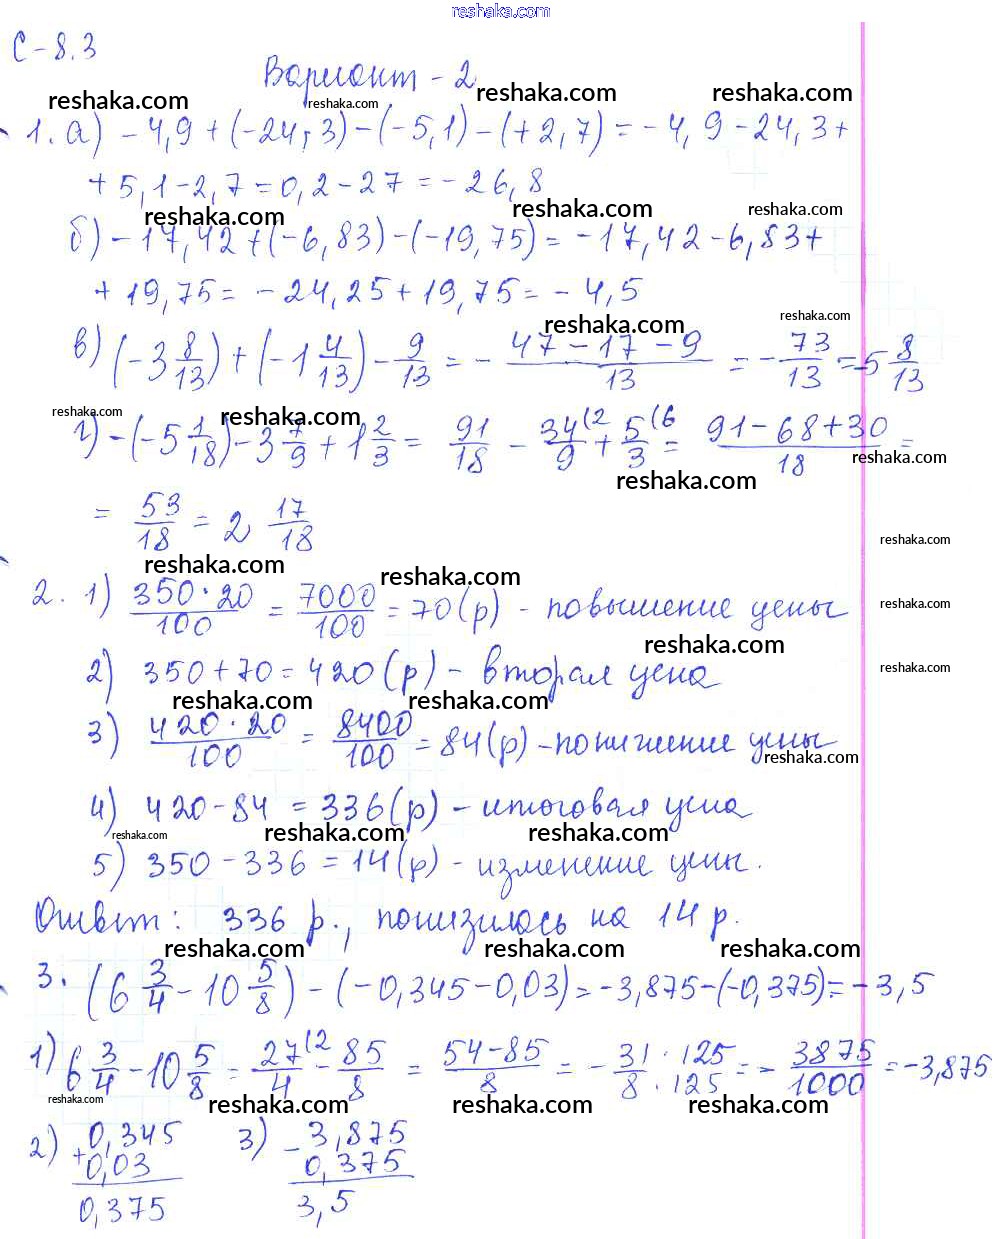 reshaka.com
С-8.3
Вариант-2
reshaka.com reshaka.com reshaka.com reshaka.com
1. а) -4,9+(-24,3)-(-5,1)-(+2,7)=-4,9-24,3+
+5,1-2,7=0,2-27=-26,8
reshaka.com reshaka.com reshaka.com
б) -17,42+(-6,83)-(-19,75)=-17,42-6,83+
+19,75=-24,25+19,75=-4,5
reshaka.com reshaka.com
в) (-3 8/13)+(-1 4/13)-9/13=-(47-17-9)/13=-73/13=-5 8/13
reshaka.com reshaka.com
г) -(-5 1/18)-3 7/9+1 2/3=91/18-34(2/9+5(6/3=(91-68+30)/18=
reshaka.com reshaka.com
=53/18=2 17/18
reshaka.com
reshaka.com reshaka.com
2. 1) (350·20)/100=7000/100=70(р) - повышение цены
reshaka.com
reshaka.com reshaka.com
2) 350+70=420(р) - вторая цена
reshaka.com reshaka.com
3) (420·20)/100=8400/100=84(р) - понижение цены
reshaka.com
4) 420-84=336(р) - итоговая цена
reshaka.com reshaka.com reshaka.com
5) 350-336=14(р) - изменение цены.
Ответ: 336 р., понизилось на 14 р.
reshaka.com reshaka.com reshaka.com
3. (6 3/4-10 5/8)-(-0,345-0,03)=-3,875-(-0,375)=-3,5
1) 6 3/4-10 5/8=27(2/4-85/8=(54-85)/8=-(31·125)/(8·125)=-3875/1000=-3,875
reshaka.com reshaka.com reshaka.com reshaka.com
2) +0,345 3) -3,875
0,03 0,375
0,375 3,5